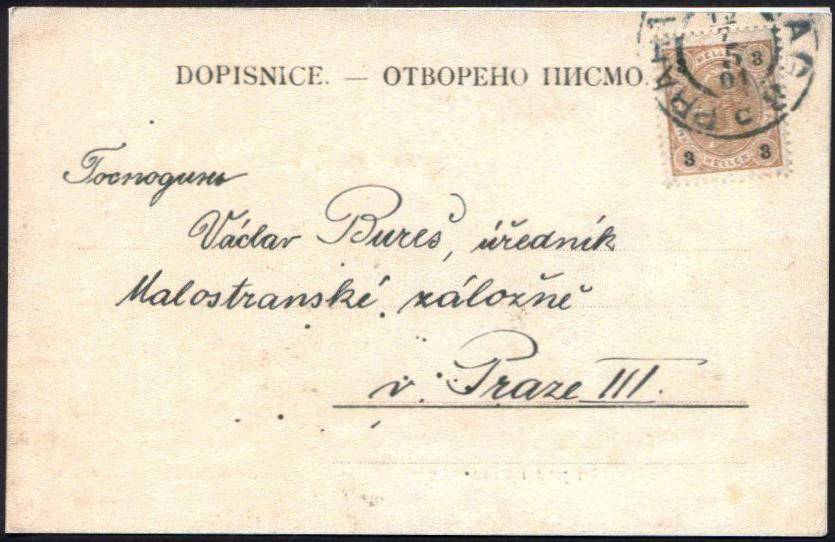 DOPISNICE. — ОТВОРЕНО ПИСМО.
3 HELLER 3
3 HELLER 3
7
5
01
Господинъ
Václav Bureš, úředník
Malostranské záložně
v Praze III.